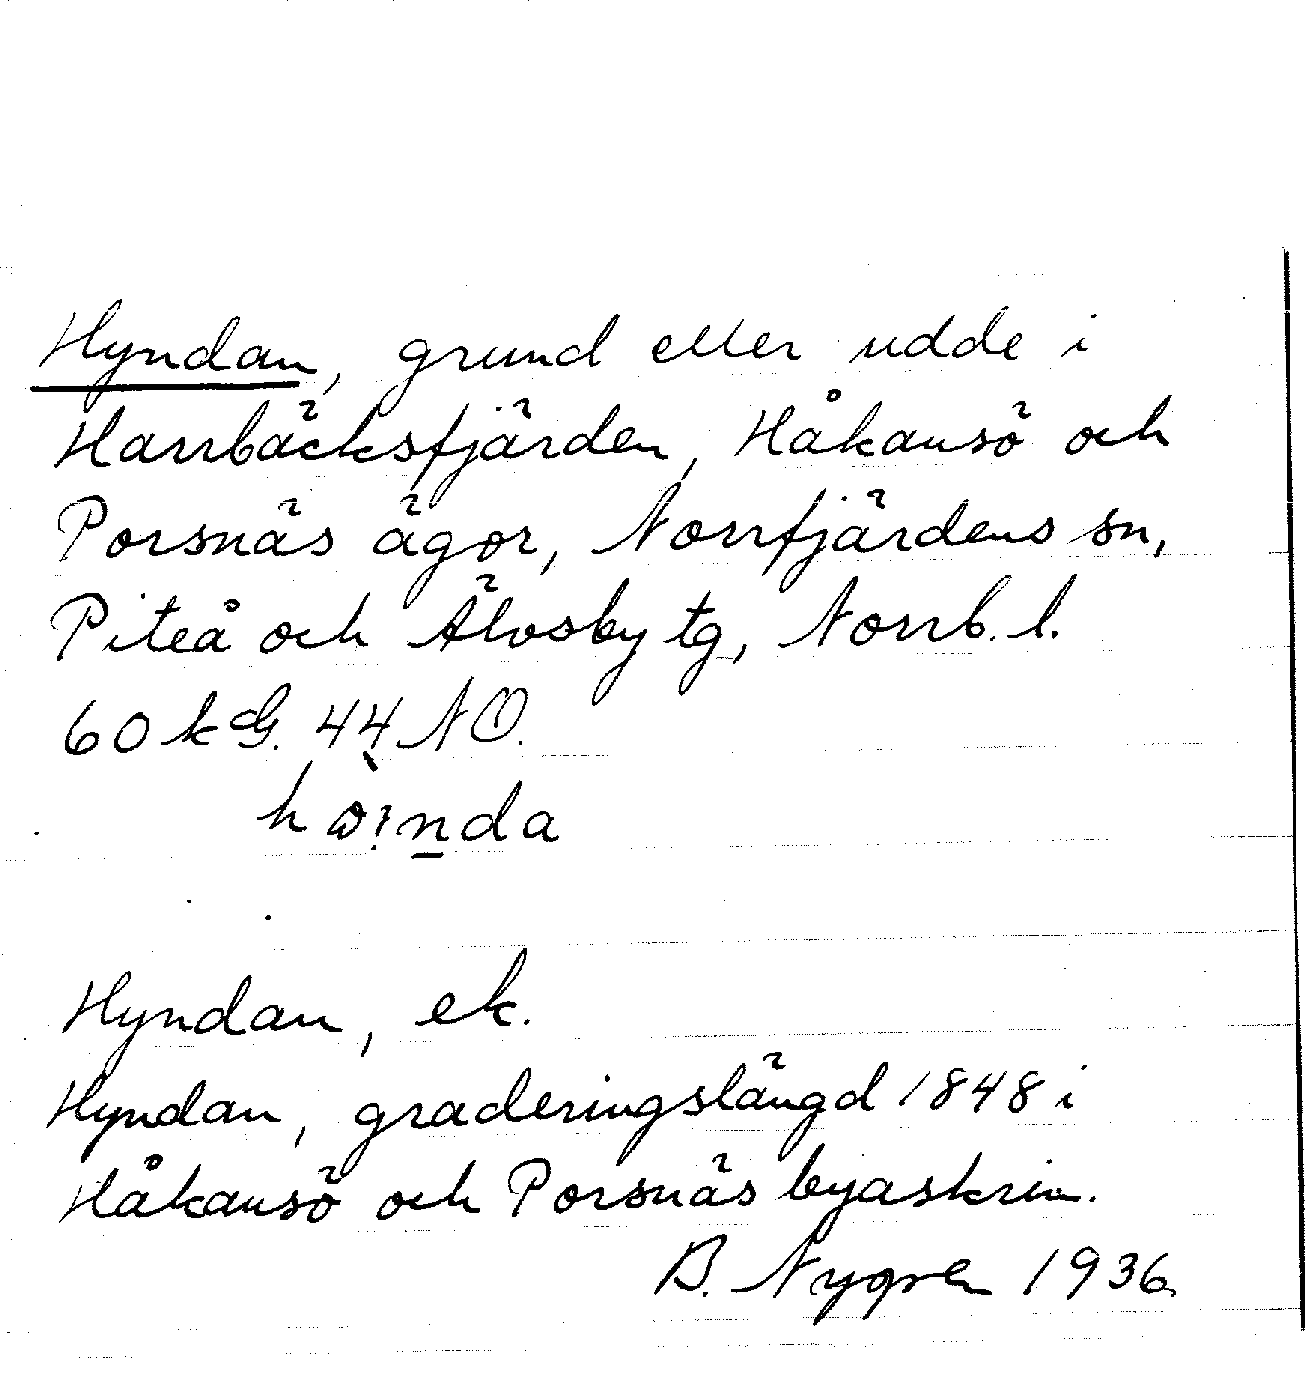 Hyndan, grund eller udde i
Harrbäcksfjärden, Håkansö och
Porsnäs ägor, Norrfjärdens sn,
Piteå och Älvsby tg, Norrb. l.
60 k G. 44 NO.
Hyndan, ek.
Hyndan, graderingslängd 1848 i
Håkansö och Porsnäs byaskrin.
B. Nygren 1936